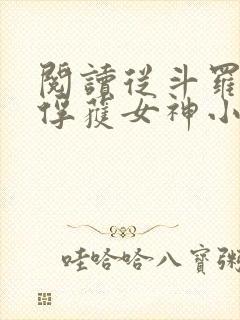 閱讀從斗羅
俘獲女神小
哇哈哈八寶粥